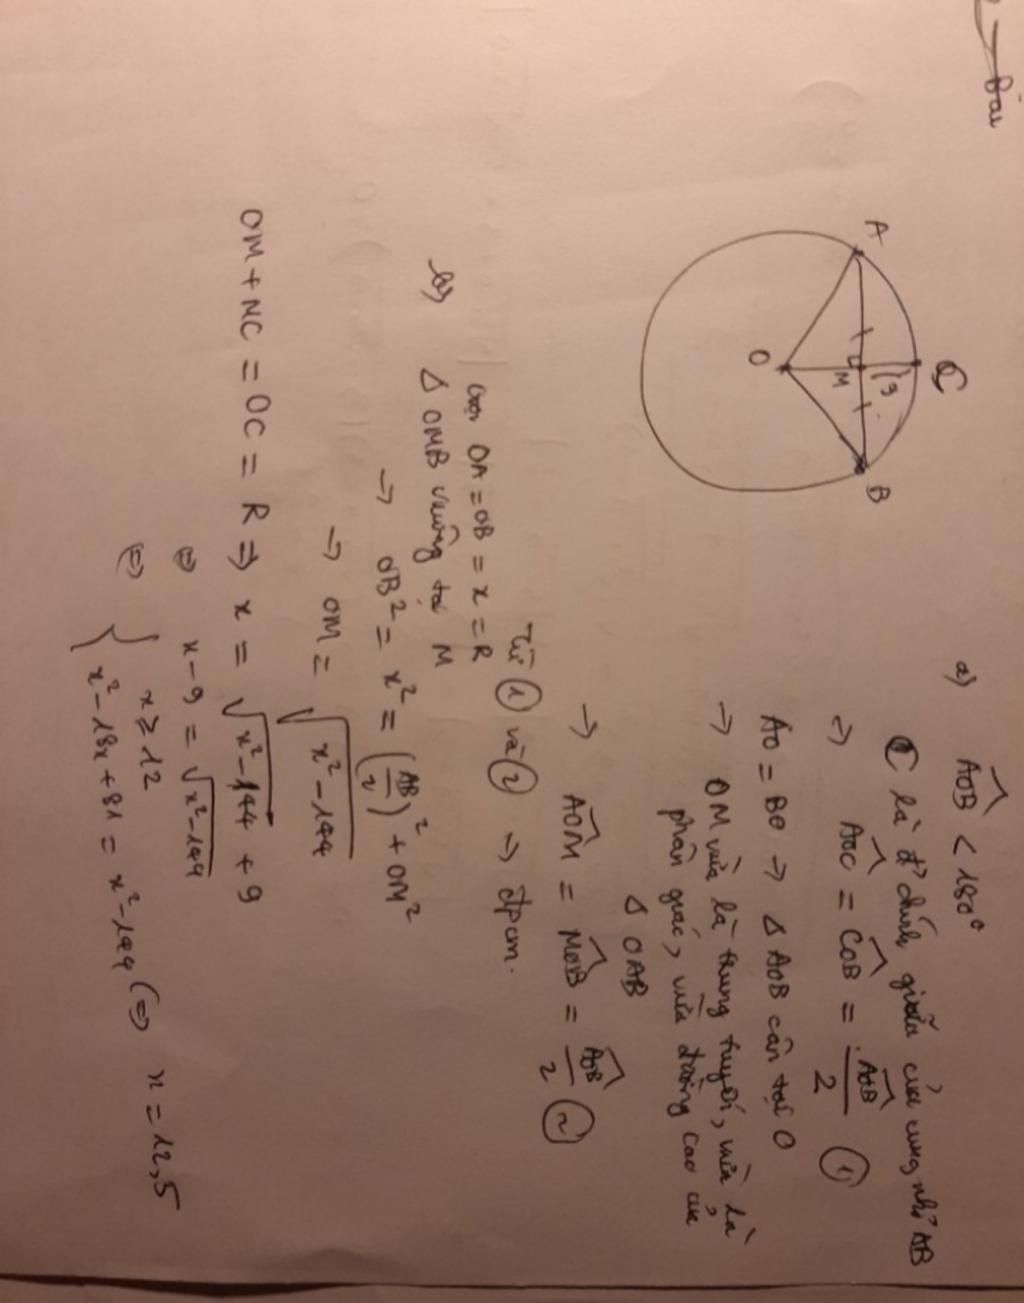 Bài
A
C
B
O
M
9
a) AOB < 180°
C là đ' chính giữa của cung nhỏ AB
=> AOC = COB = AOB/2 (1)
AO = BO → Δ AOB cân tại O
→ OM vừa là trung tuyến, vừa là
phân giác, vừa đường cao của
Δ OAB
→ AOM = MOB = AOB/2 (2)
Từ (1) và (2) → đpcm.
b)
OA = OB = x = R
Δ OMB vuông tại M
→ OB² = x² = (AB/2)² + OM²
→ OM = √(x²-144)
OM + MC = OC = R => x = √(x²-144) + 9
⇔ x-9 = √(x²-144)
⇔ { x ≥ 12
x²-18x+81 = x²-144 ⇔ x = 12,5